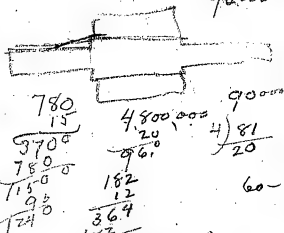 780
15
3700
780
1150
90
1240
4800000
20
96.0
182
12
364
90000
4)81
20
60-